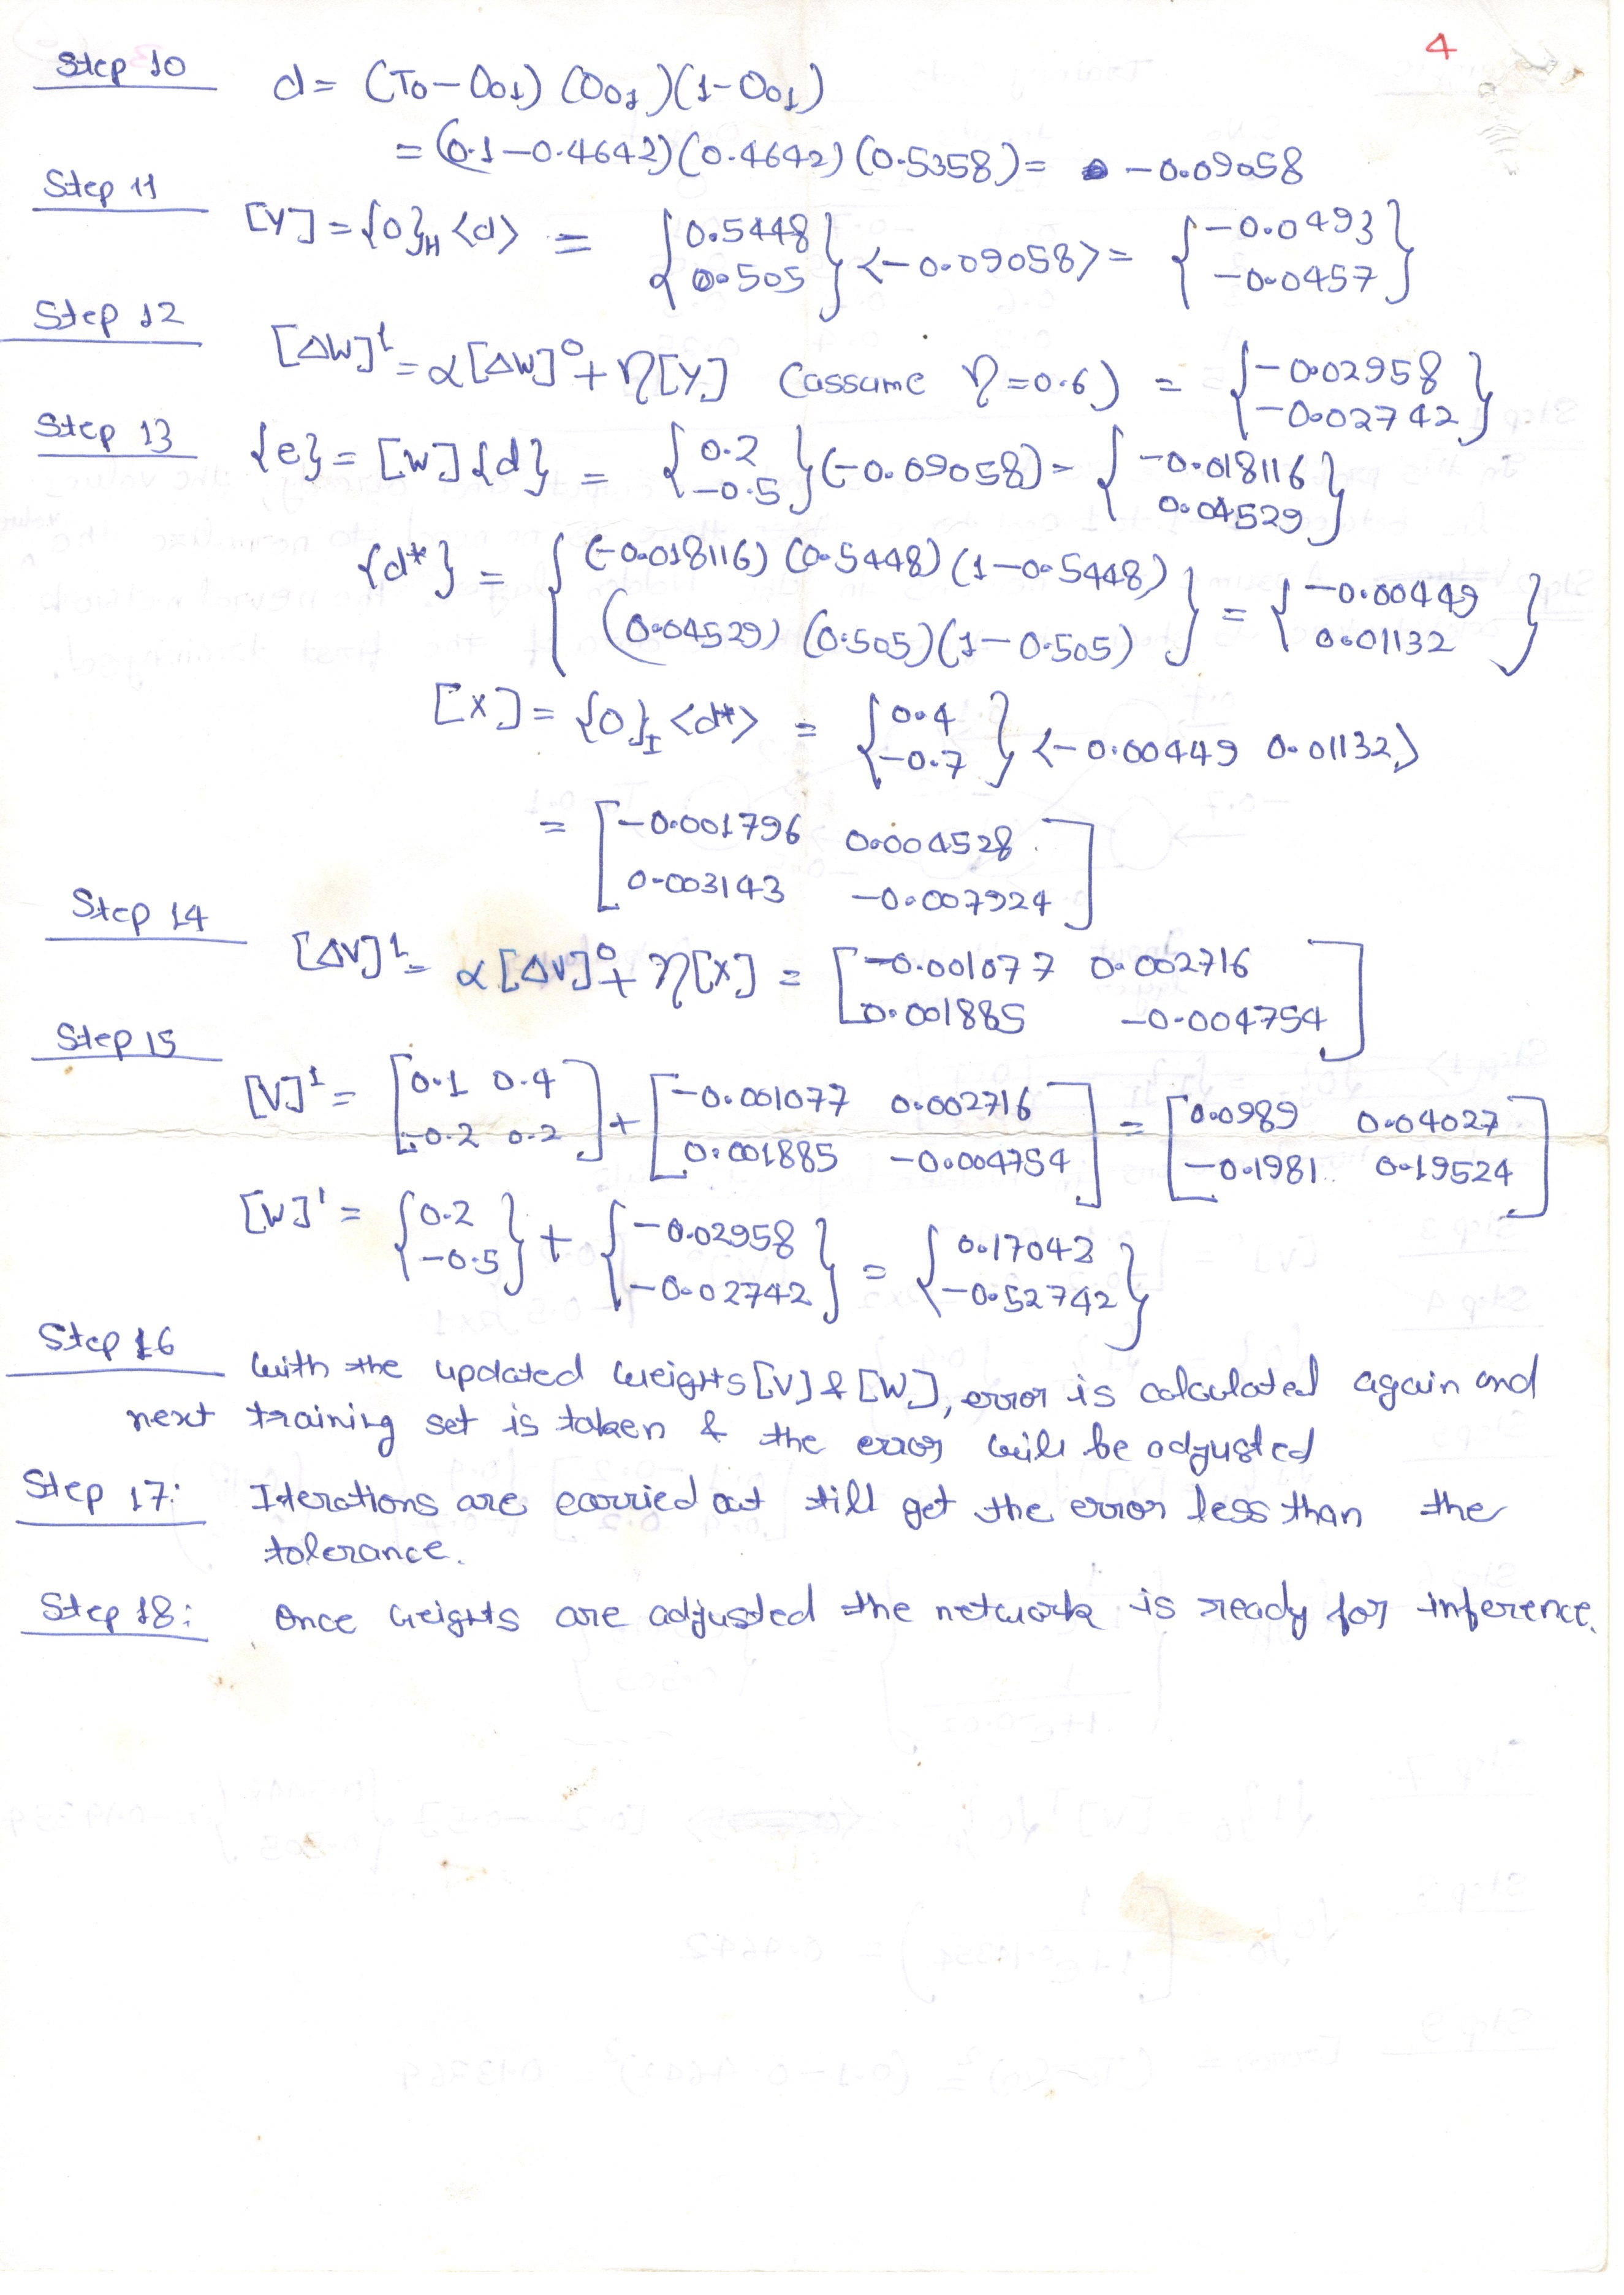 4
Step 10 d = (To - O01) (O01)(1-O01)
= (0.1-0.4642)(0.4642)(0.5358) = -0.09058
Step 11 [Y] = {O}H <d> = {0.5448 0.505} <-0.09058> = {-0.0493 -0.0457}
Step 12 [ΔW]¹ = α[ΔW]⁰ + η[Y] (assume η=0.6) = {-0.02958 -0.02742}
Step 13 {e} = [W]{d} = {0.2 -0.5} (-0.09058) = {-0.018116 0.04529}
{d*} = {(-0.018116) (0.5448) (1-0.5448) (0.04529) (0.505)(1-0.505)} = {-0.00449 0.01132}
[X] = {O}I <d*> = {0.4 -0.7} <-0.00449 0.01132>
= [-0.001796 0.004528
0.003143 -0.007924]
Step 14 [ΔV]¹ = α[ΔV]⁰ + η[X] = [-0.001077 0.002716 0.001885 -0.004754]
Step 15
[V]¹ = [0.1 0.4 -0.2 0.2] + [-0.001077 0.002716 0.001885 -0.004754] = [0.0989 0.04027 -0.1981 0.19524]
[W]' = {0.2 -0.5} + {-0.02958 -0.02742} = {0.17042 -0.52742}
Step 16 With the updated weights [V] & [W], error is calculated again and
next training set is taken & the error will be adjusted
Step 17: Iterations are carried out till get the error less than the
tolerance.
Step 18: Once weights are adjusted the network is ready for inference.